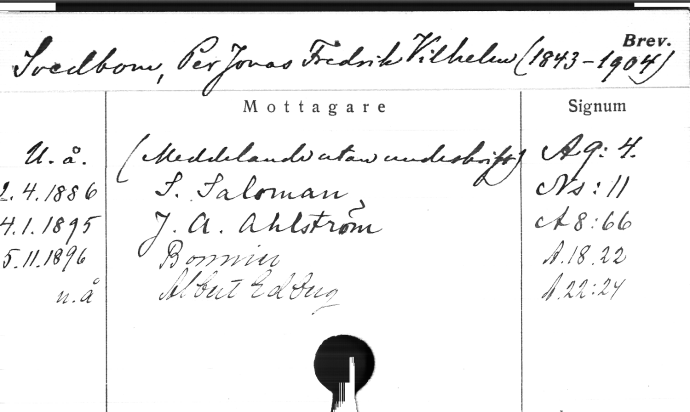 Brev.
Svedbom, Per Jonas Fredrik Vilhelm (1843-1904)
Mottagare Signum
U. å. (Meddelande utan underskrift) Ag: 4.
2.4.1886 S. Saloman, Ns: 11
4.1.1895 J. A. Ahlström A8:66
5.11.1896 Bonnier A.18.22
u.å Albert Edberg A.22:24